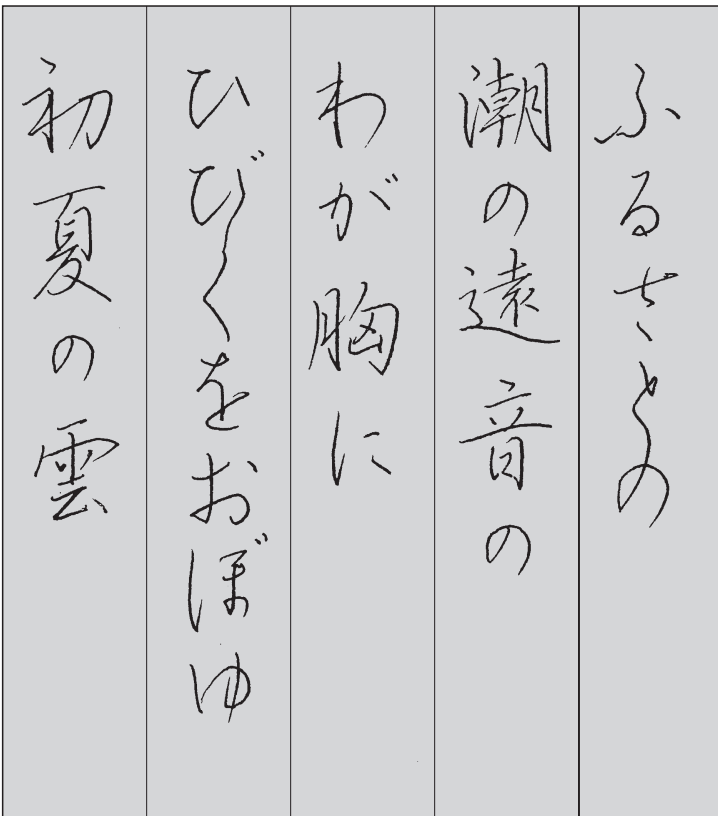 ふるさとの
潮の遠音の
わが胸に
ひびくをおぼゆ
初夏の雲